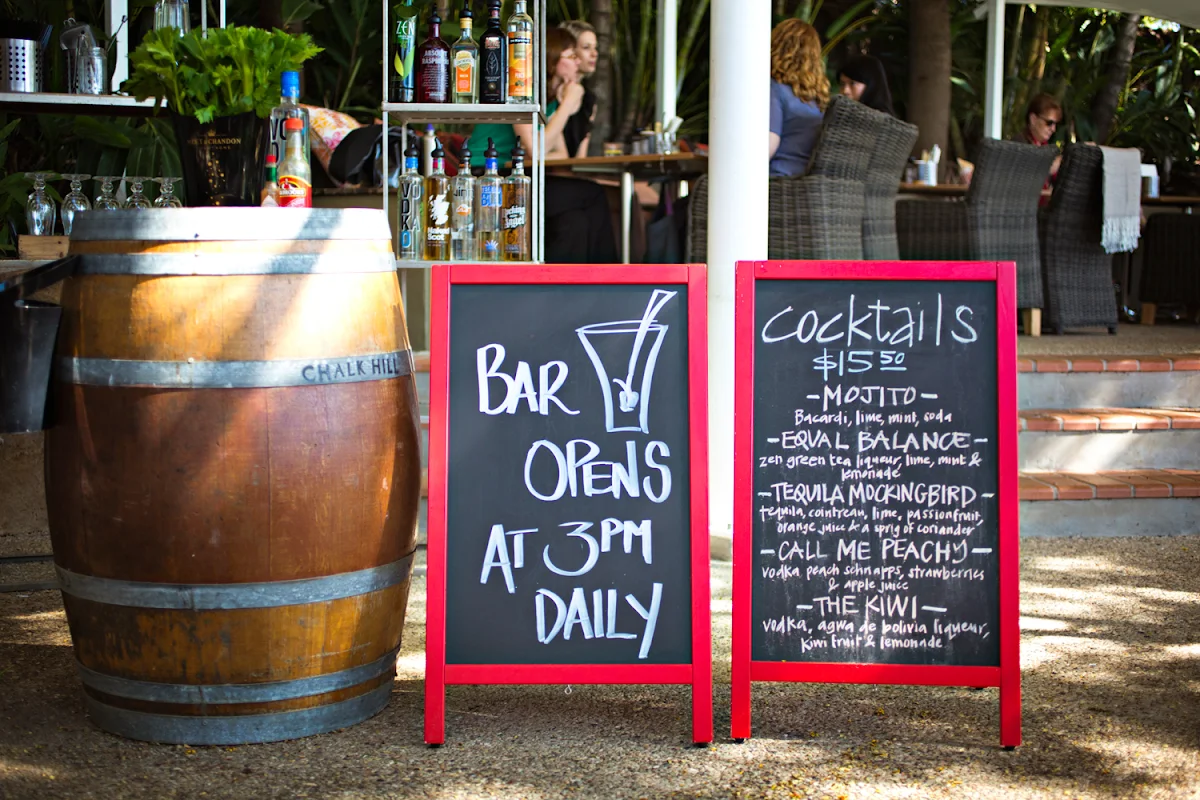 ZEN
ABSOLUT
MOËT & CHANDON
VODKA
CHALK HILL
BAR
OPENS
AT 3PM
DAILY
cocktails
$15.50
-MOJITO-
Bacardi, lime, mint, soda
-EQUAL BALANCE-
zen green tea liqueur, lime, mint &
lemonade
-TEQUILA MOCKINGBIRD-
tequila, cointreau, lime, passionfruit,
orange juice & a sprig of coriander
-CALL ME PEACHY-
vodka peach schnapps, strawberries
& apple juice
-THE KIWI-
vodka, agwa de bolivia liqueur,
kiwi fruit & lemonade